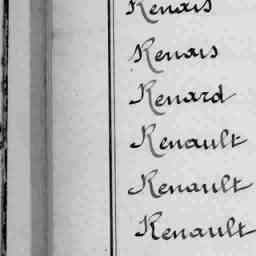 Renais
Renais
Renard
Renault
Renault
Renault